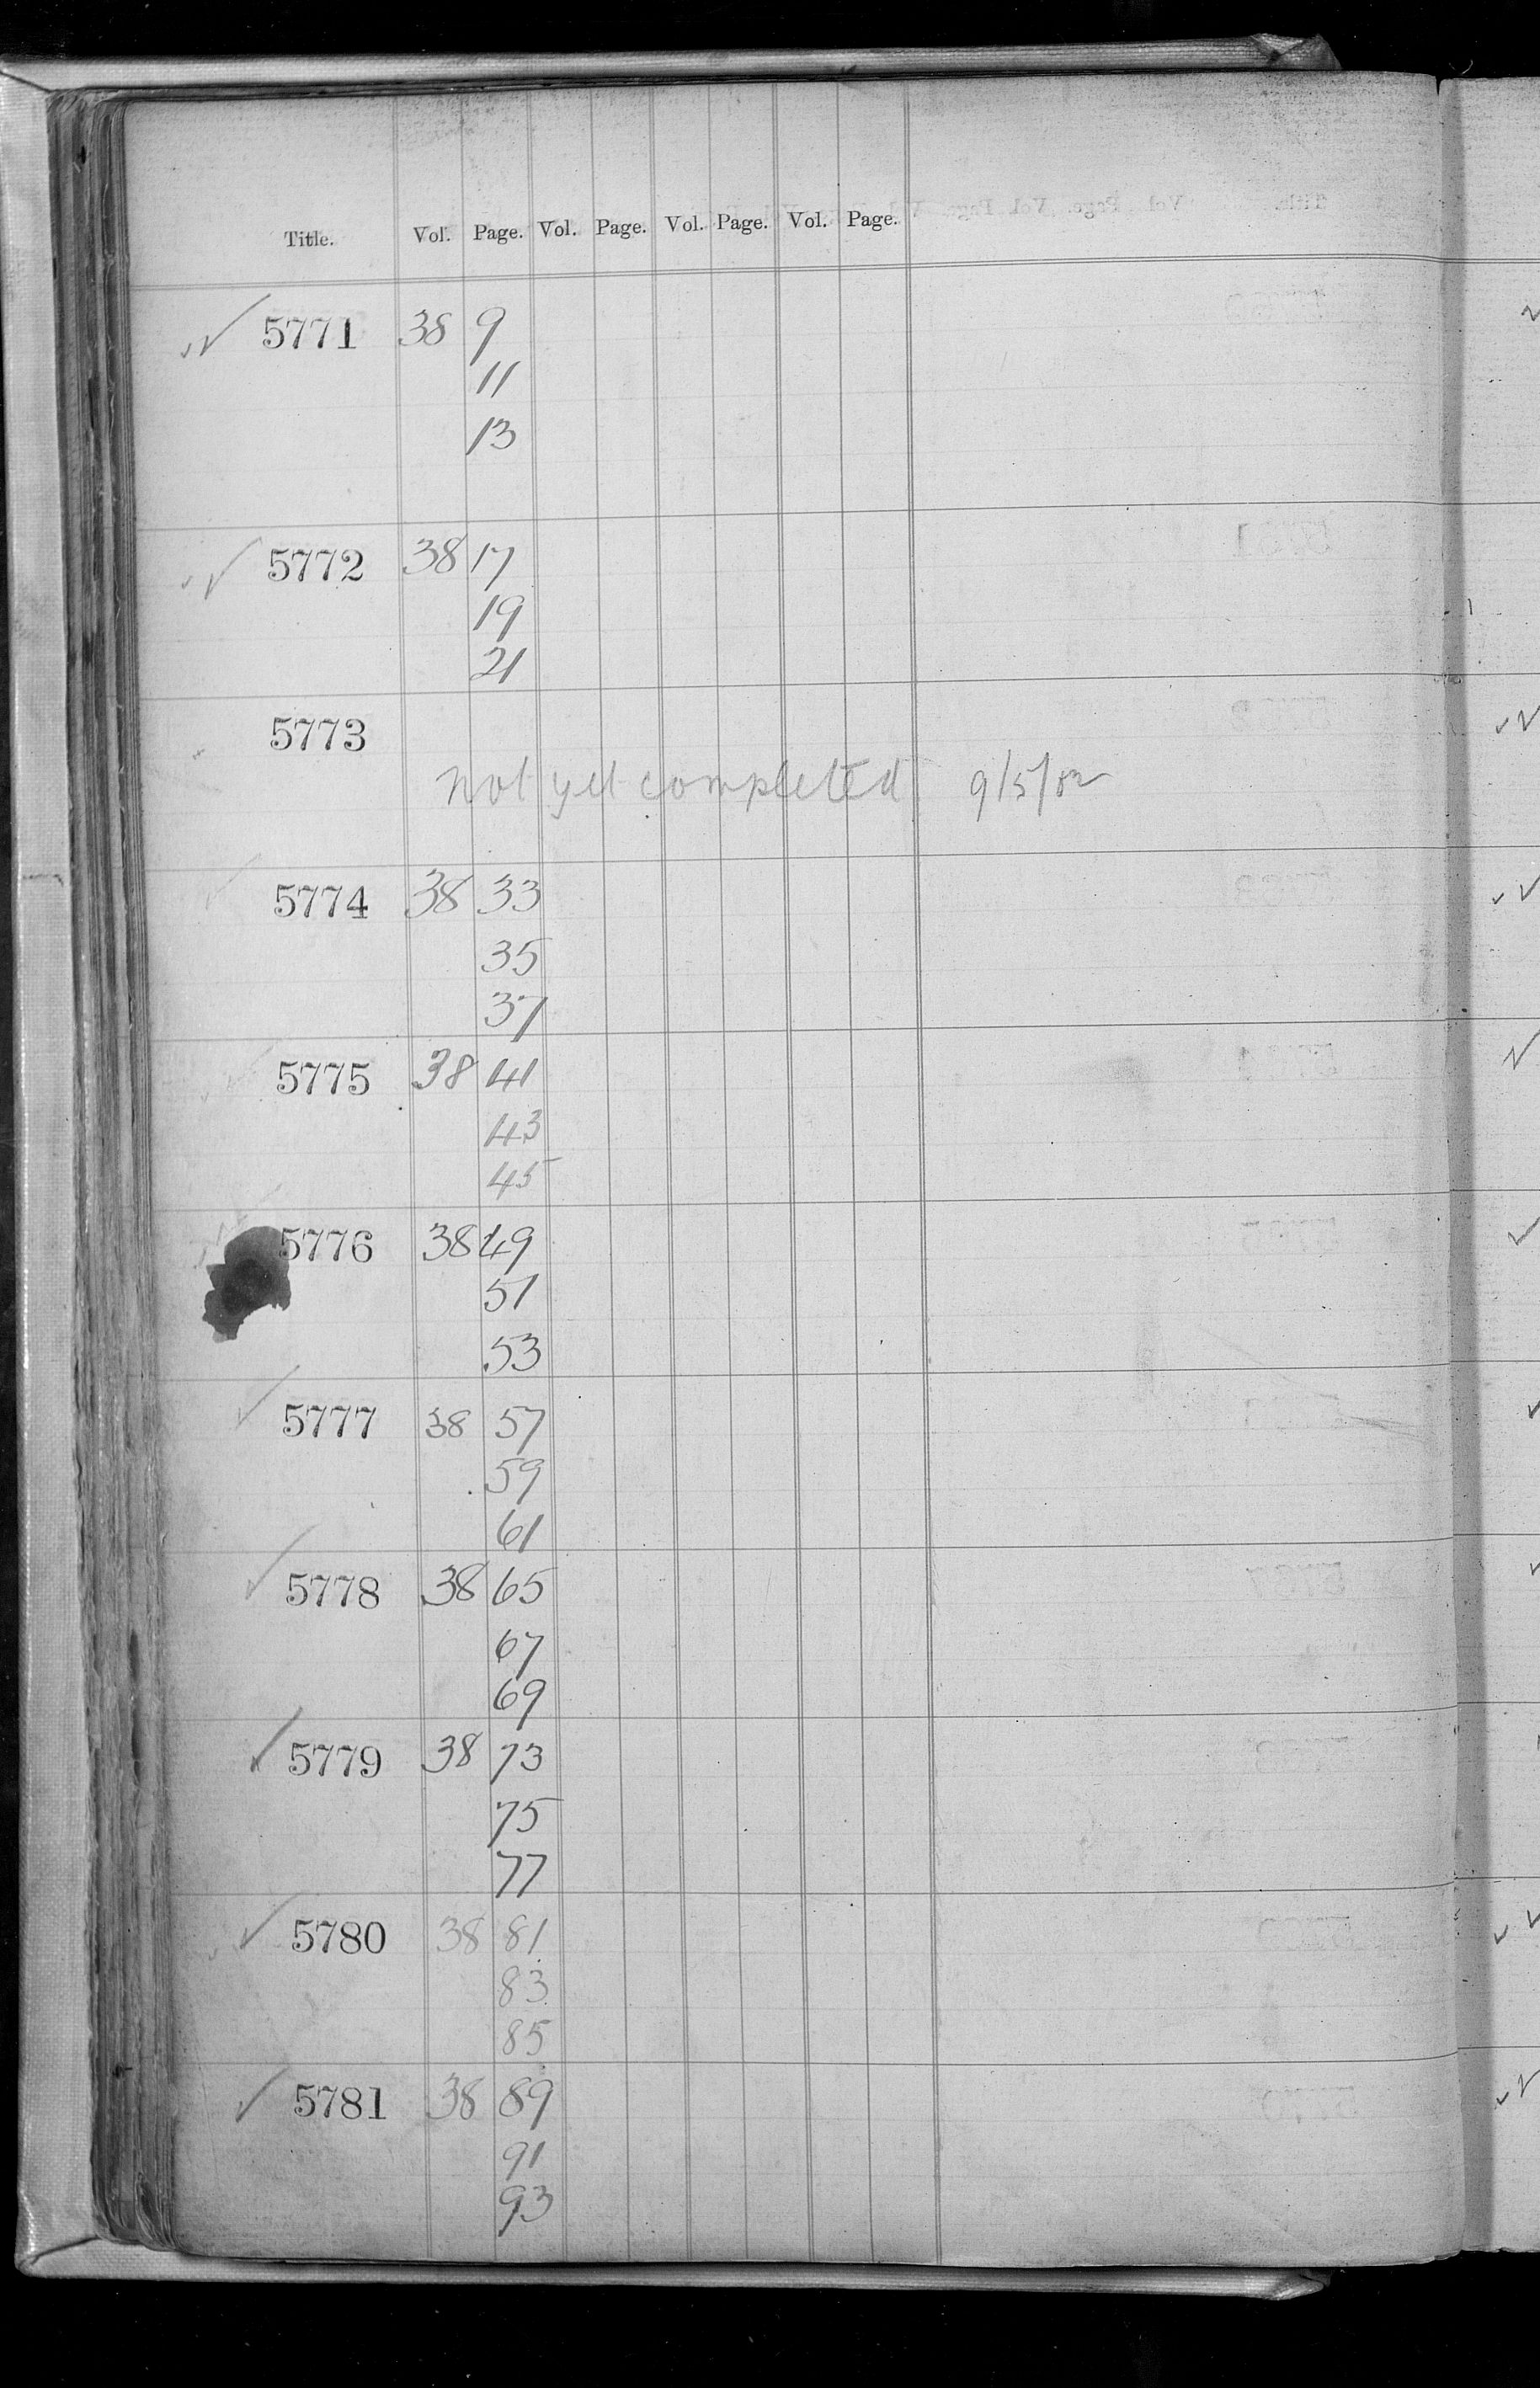 Title. Vol. Page. Vol. Page. Vol. Page. Vol. Page.
5771 38 9
11
13
5772 38 17
19
21
5773
not yet completed 9/5/02
5774 38 33
35
37
5775 38 41
43
45
5776 38 49
51
53
5777 38 57
59
61
5778 38 65
67
69
5779 38 73
75
77
5780 38 81
83
85
5781 38 89
91
93